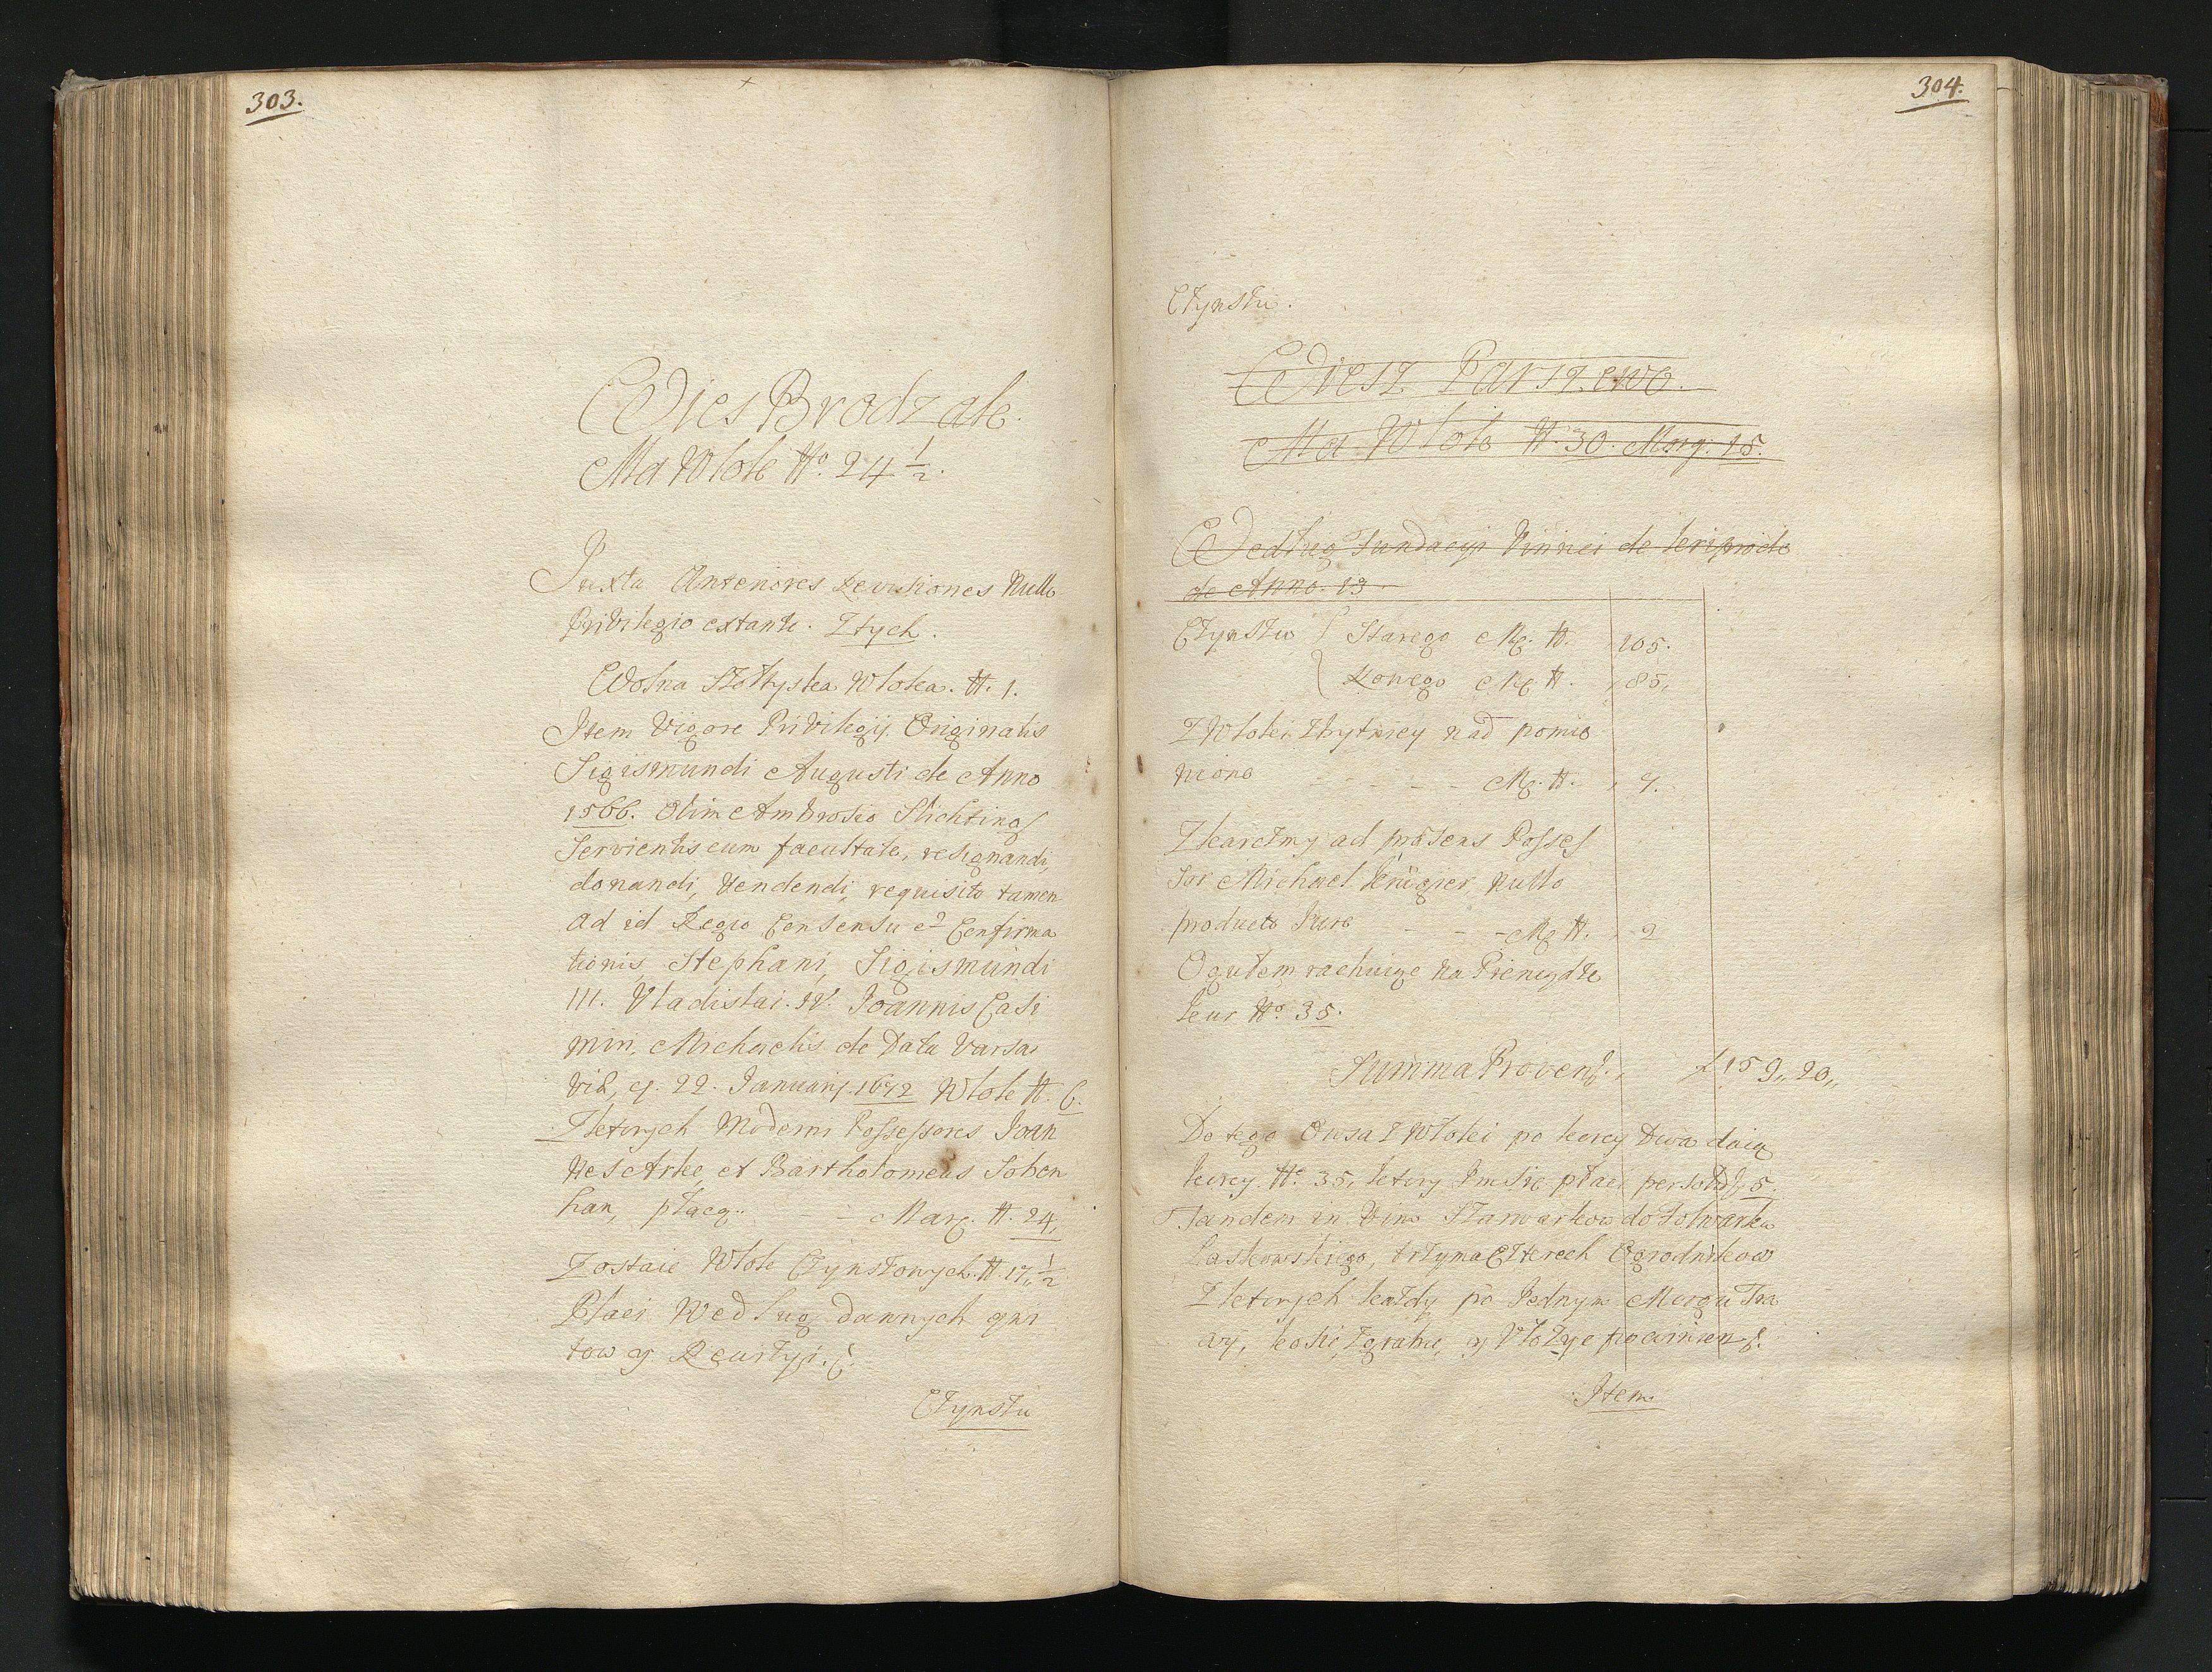 303.
Wies Brodzale.
Ma Wlok No. 24 1/2.
Juxta Anteriores Revisiones Nullo
Privilegio extante. Ztych.
Wolna Szołtyska Wloka. N. 1.
Item Vigore Privilegij Originalis
Sigismundi Augusti de Anno
1566. Olim Ambrosio Slichting
Servientis cum facultate, resignandi,
donandi, Vendendi, requisito tamen
ad id Regio Consensu et Confirma
tionis Stephani, Sigismundi
III. Vladislai. IV. Joannis Casi
miri, Michaelis de Data Varsa
viæ, 22. Januarij 1672 Wlok N. 6.
Zktorych Moderni Possessores Joan
nes Arke, et Bartholomeus Sohen
han, płacą. - - Marg. N. 24.
Zostaie Wlok Czynszowych. N. 17 1/2
Płaci Według dawnych qwi
tow y Rewizyi.
Czynszu
304.
Czynszu.
Wiesz Parszewo.
Ma Wlok N. 30. Morg. 15.
Według Fundacyi Vinrici de Kniprode
de Anno. 13
Czynszu Starego Mg. N. 105.
Nowego Mg. N. 85.
Z Wloki Zbytniey nad pomie
niono - - - - Mg. N. 7.
Zkarczmy ad præsens Posses
sor Michael Krüger, Nullo
producto Jure - - - Mg. N. 2
Ogułem rachuiąc na Pieniądze
kur No. 35.
Summa Provent. f. 159,, 20,,
Do tego Owsa Z Włoki po korcy Dwa daią
korcy No. 35, ktory Imsie płaci per 5.
Tandem in Vim Szarwarkow do folwarku
Laskowskiego, trzyma Czterech Ogrodnikow
Zktorych każdy po Jednym Morgu Tra
wy, kosić, Zgrabić, y Vłożyć powinien.
Item